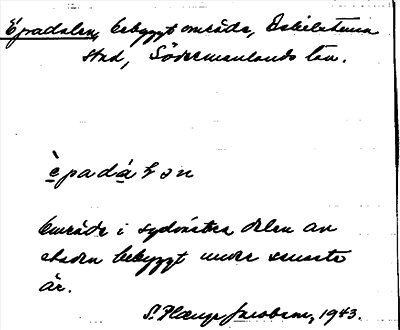 Epadalen, bebyggt område, Eskilstuna
stad, Södermanlands län.
èpadáɫən
Område i sydvästra delen av
staden bebyggt under senaste
år.
S. Plange Jacobson, 1943.